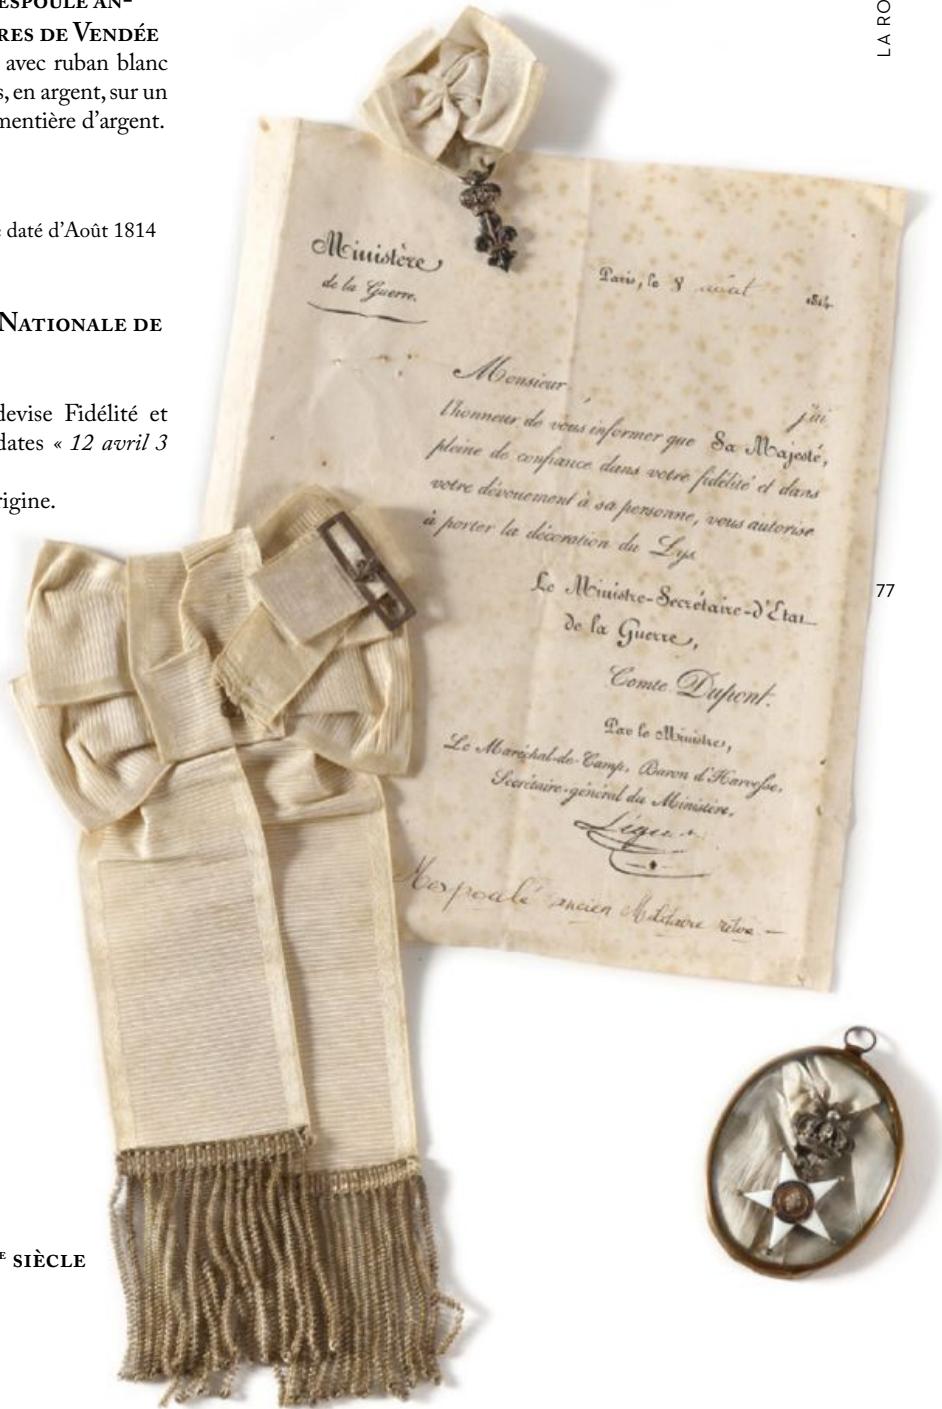 ESPOULE AN-
RES DE VENDÉE
avec ruban blanc
s, en argent, sur un
mentière d'argent.
e daté d'Août 1814
NATIONALE DE
devise Fidélité et
dates « 12 avril 3
rigine.
E SIÈCLE
LA RO
77
Ministère
de la Guerre.
Paris, le 8 août 1814
Monsieur
j'ai
l'honneur de vous informer que Sa Majesté,
pleine de confiance dans votre fidélité et dans
votre dévouement à sa personne, vous autorise
à porter la décoration du Lys
Le Ministre-Secrétaire-d'Etat
de la Guerre,
Comte Dupont.
Par le Ministre,
Le Maréchal-de-Camp, Baron
Secrétaire-général du Ministère,
ancien Militaire